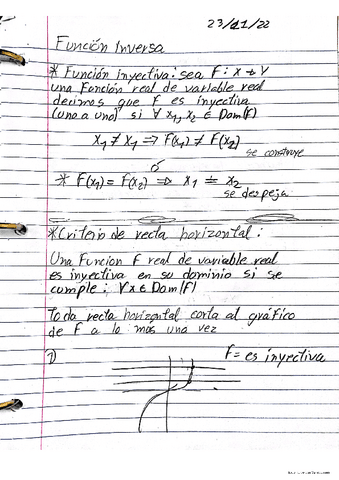 23/11/22
Función Inversa
* Función inyectiva: sea F: X → Y
una Función real de variable real
decimos que F es inyectiva
(uno a uno) si ∀ x₁, x₂ ∈ Dom(F)
x₁ ≠ x₁ ⇒ F(x₁) ≠ F(x₂)
se construye
ó
* F(x₁) = F(x₂) ⇒ x₁ = x₂
se despeja
* Criterio de recta horizontal:
Una Funcion F real de variable real
es inyectiva en su dominio si se
cumple: ∀x ∈ Dom(F)
toda recta horizontal corta al gráfico
de F a lo mas una vez
1)
F = es inyectiva